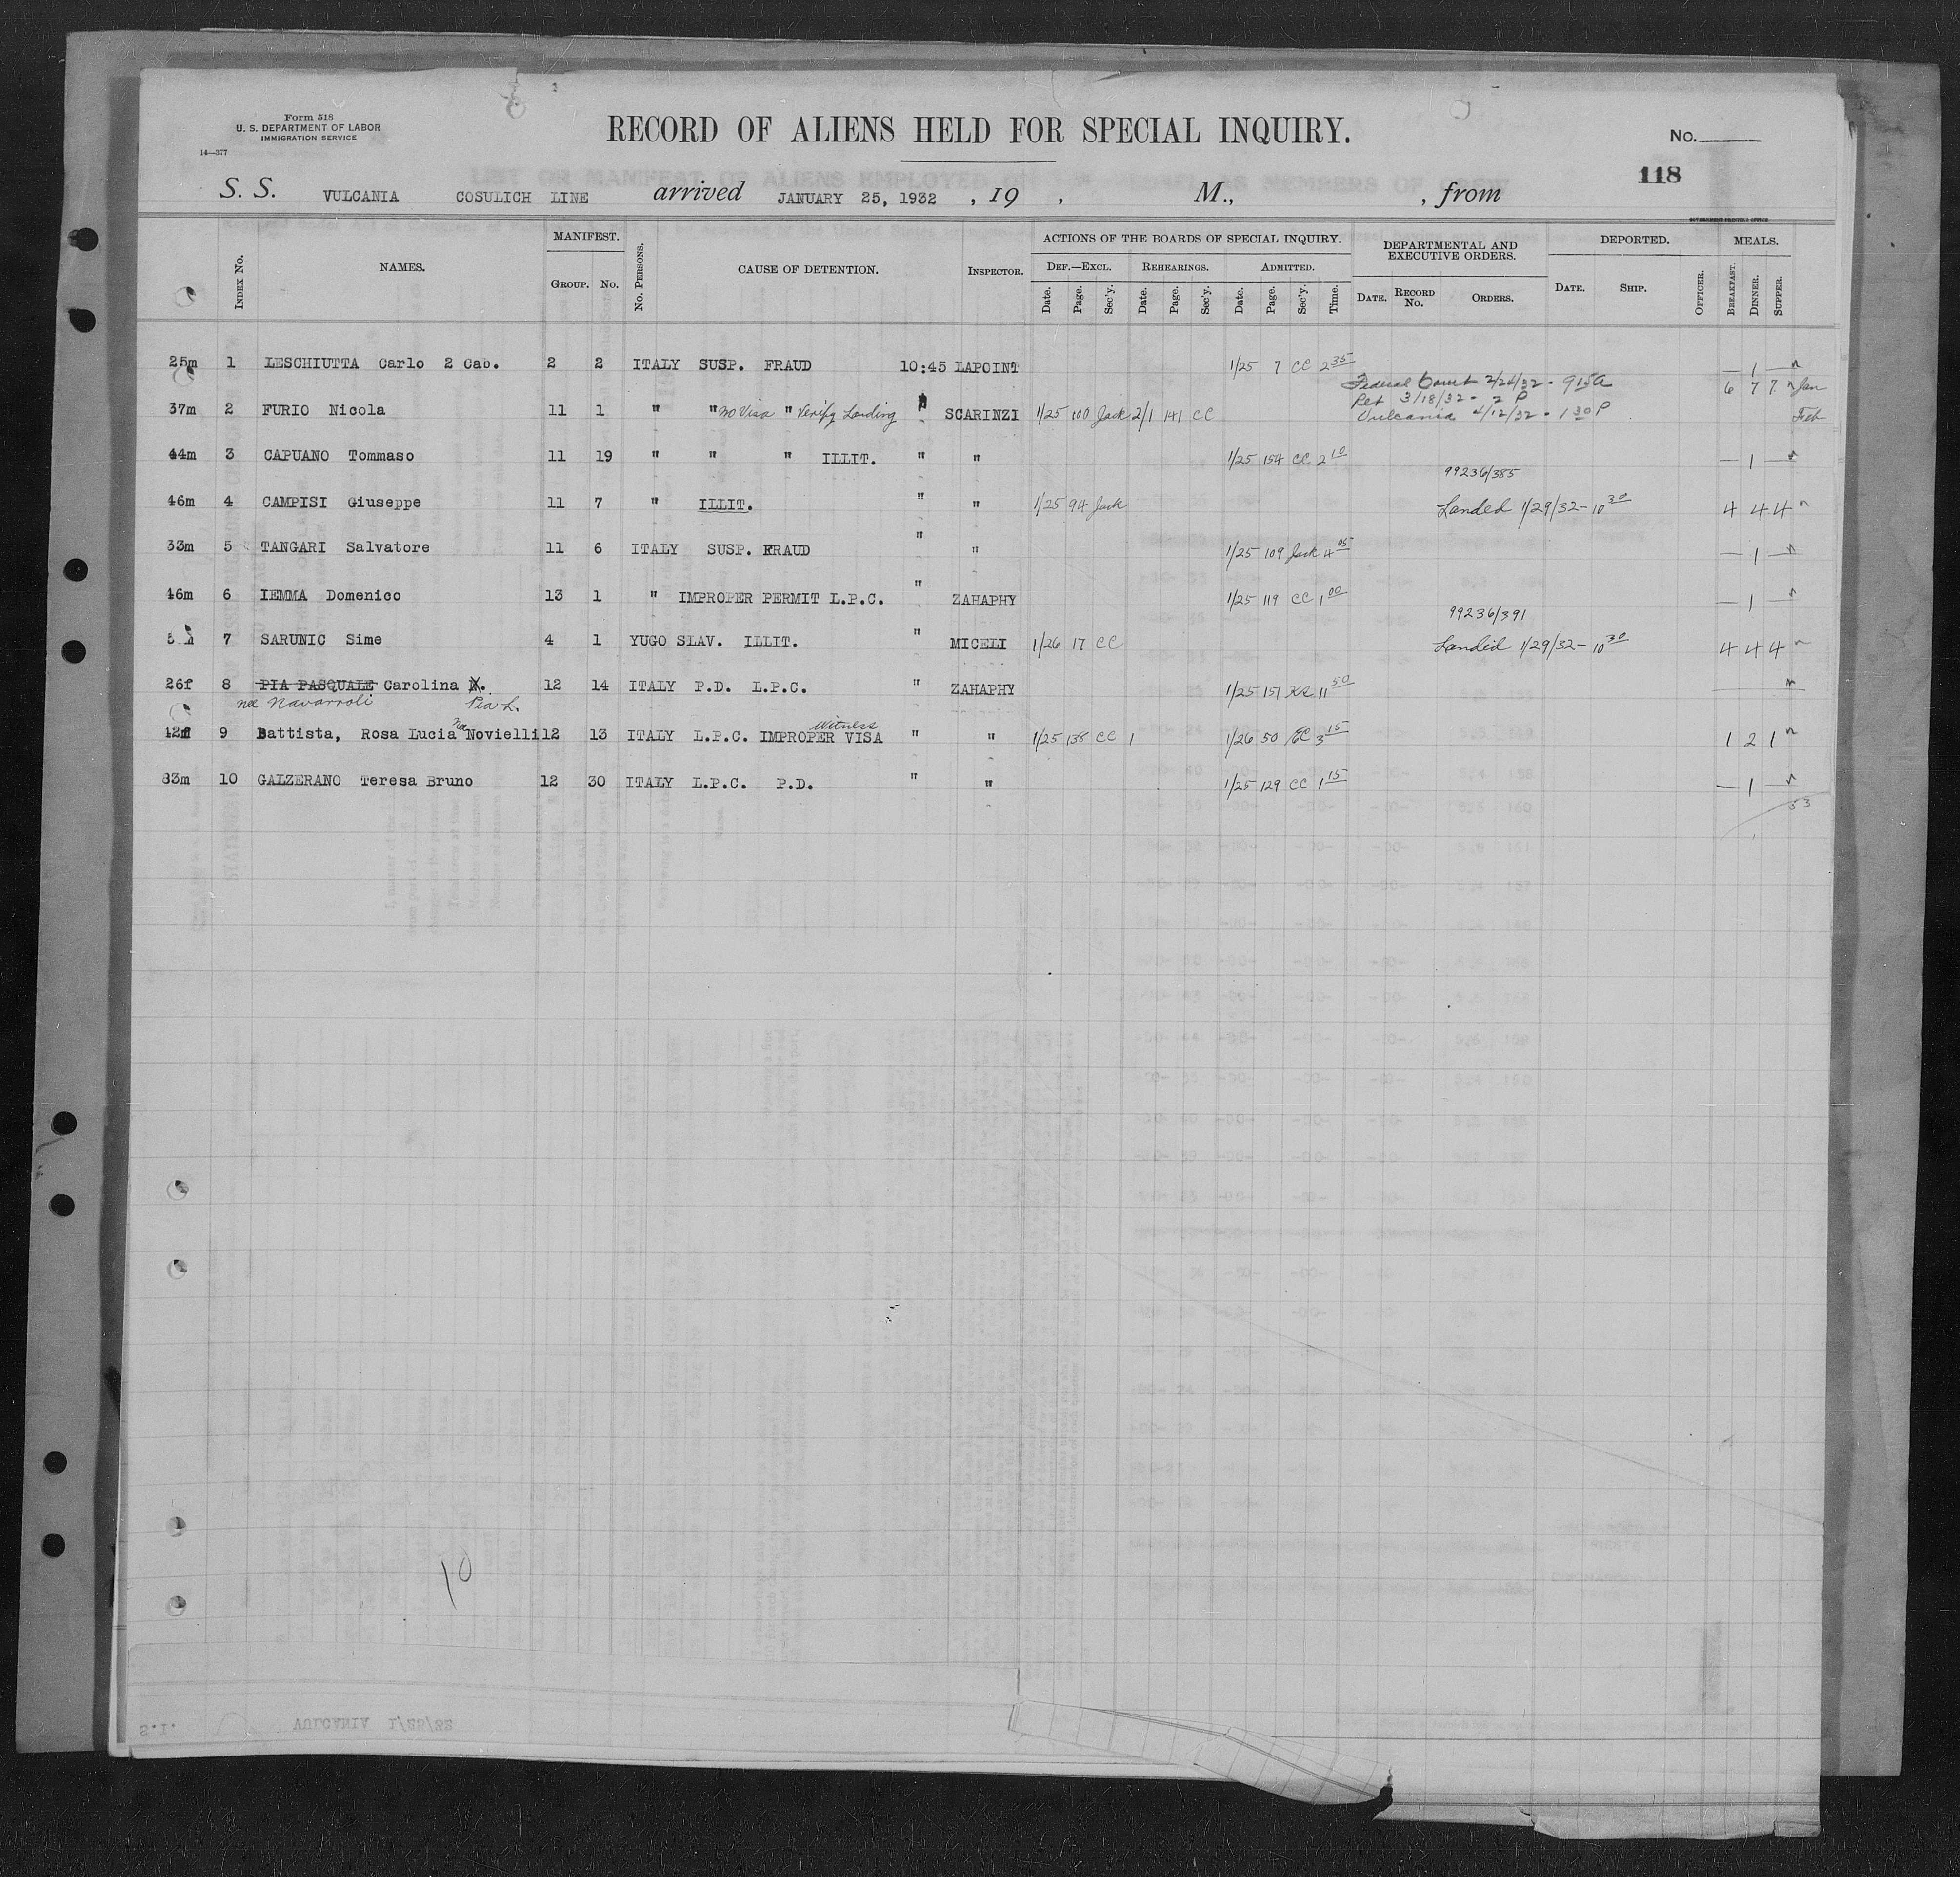 Form 518
U. S. DEPARTMENT OF LABOR
IMMIGRATION SERVICE
14—377
RECORD OF ALIENS HELD FOR SPECIAL INQUIRY.
No.
118
S. S. VULCANIA COSULICH LINE arrived JANUARY 25, 1932 , 19 , M., , from
GOVERNMENT PRINTING OFFICE
Index No. NAMES. MANIFEST. Group. No. No. Persons. CAUSE OF DETENTION. Inspector. ACTIONS OF THE BOARDS OF SPECIAL INQUIRY. DEPARTMENTAL AND EXECUTIVE ORDERS. DEPORTED. MEALS.
Def.—Excl. Rehearings. Admitted.
Date. Page. Sec'y. Date. Page. Sec'y. Date. Page. Sec'y. Time. Date. Record No. Orders. Date. Ship. Officer. Breakfast. Dinner. Supper.
25m 1 LESCHIUTTA Carlo 2 Cab. 2 2 ITALY SUSP. FRAUD 10:45 LAPOINT 1/25 7 CC 2 35 — 1 —
Federal Court 2/24/32 - 9 15 A 6 7 7 Jan
Ret 3/18/32 - 2 P
37m 2 FURIO Nicola 11 1 " " No Visa " Verify Landing SCARINZI 1/25 100 Jack 2/1 141 CC Vulcania 4/12/32 - 1 30 P Feb
44m 3 CAPUANO Tommaso 11 19 " " " ILLIT. " " 1/25 154 CC 2 10 — 1 —
99236/385
46m 4 CAMPISI Giuseppe 11 7 " ILLIT. " " 1/25 94 Jack Landed 1/29/32 - 10 30 4 4 4
33m 5 TANGARI Salvatore 11 6 ITALY SUSP. FRAUD " " 1/25 109 Jack 4 05 — 1 —
46m 6 IEMMA Domenico 13 1 " IMPROPER PERMIT L.P.C. " ZAHAPHY 1/25 119 CC 1 00 — 1 —
99236/391
7 SARUNIC Sime 4 1 YUGO SLAV. ILLIT. " MICELI 1/26 17 CC Landed 1/29/32 - 10 30 4 4 4
26f 8 PIA PASQUALE Carolina X. 12 14 ITALY P.D. L.P.C. " ZAHAPHY 1/25 151 11 50
nee Navarroli Pia L.
Witness
42f 9 Battista, Rosa Lucia Nee Novielli 12 13 ITALY L.P.C. IMPROPER VISA " " 1/25 138 CC 1 1/26 50 CC 3 15 1 2 1
33m 10 GALZERANO Teresa Bruno 12 30 ITALY L.P.C. P.D. " " 1/25 129 CC 1 15 — 1 —
53
10
S.I. VULCANIA